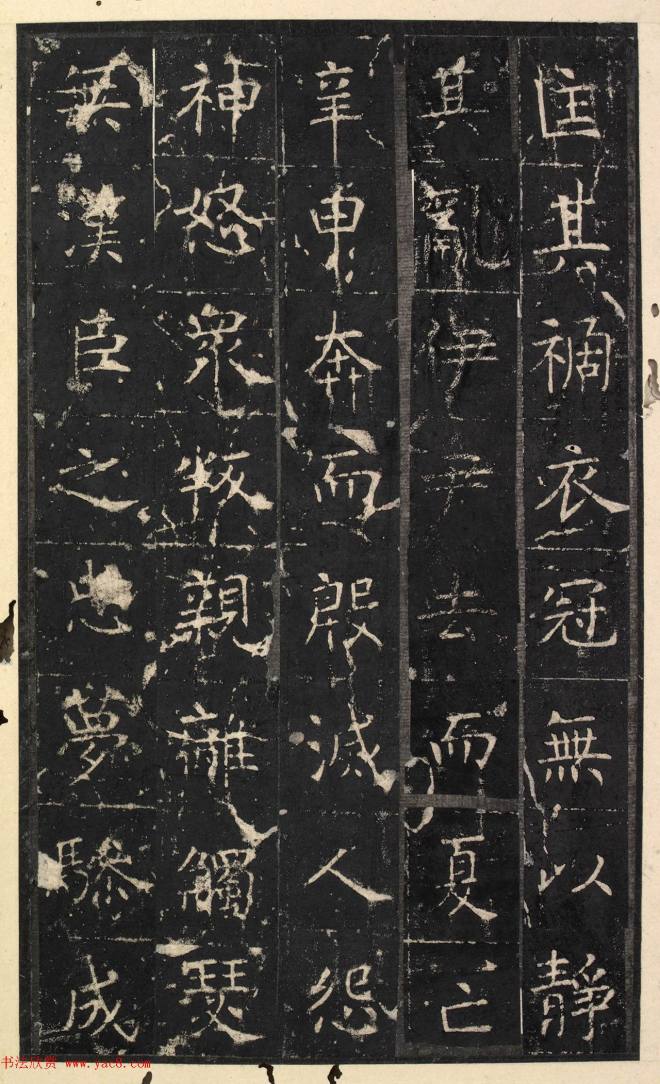 匡其禍衣冠無以靜
其亂伊尹去而夏亡
辛甲奔而殷滅人怨
神怒衆叛親離觸瑟
無漢臣之忠夢驂成
书法欣赏 www.yac8.com